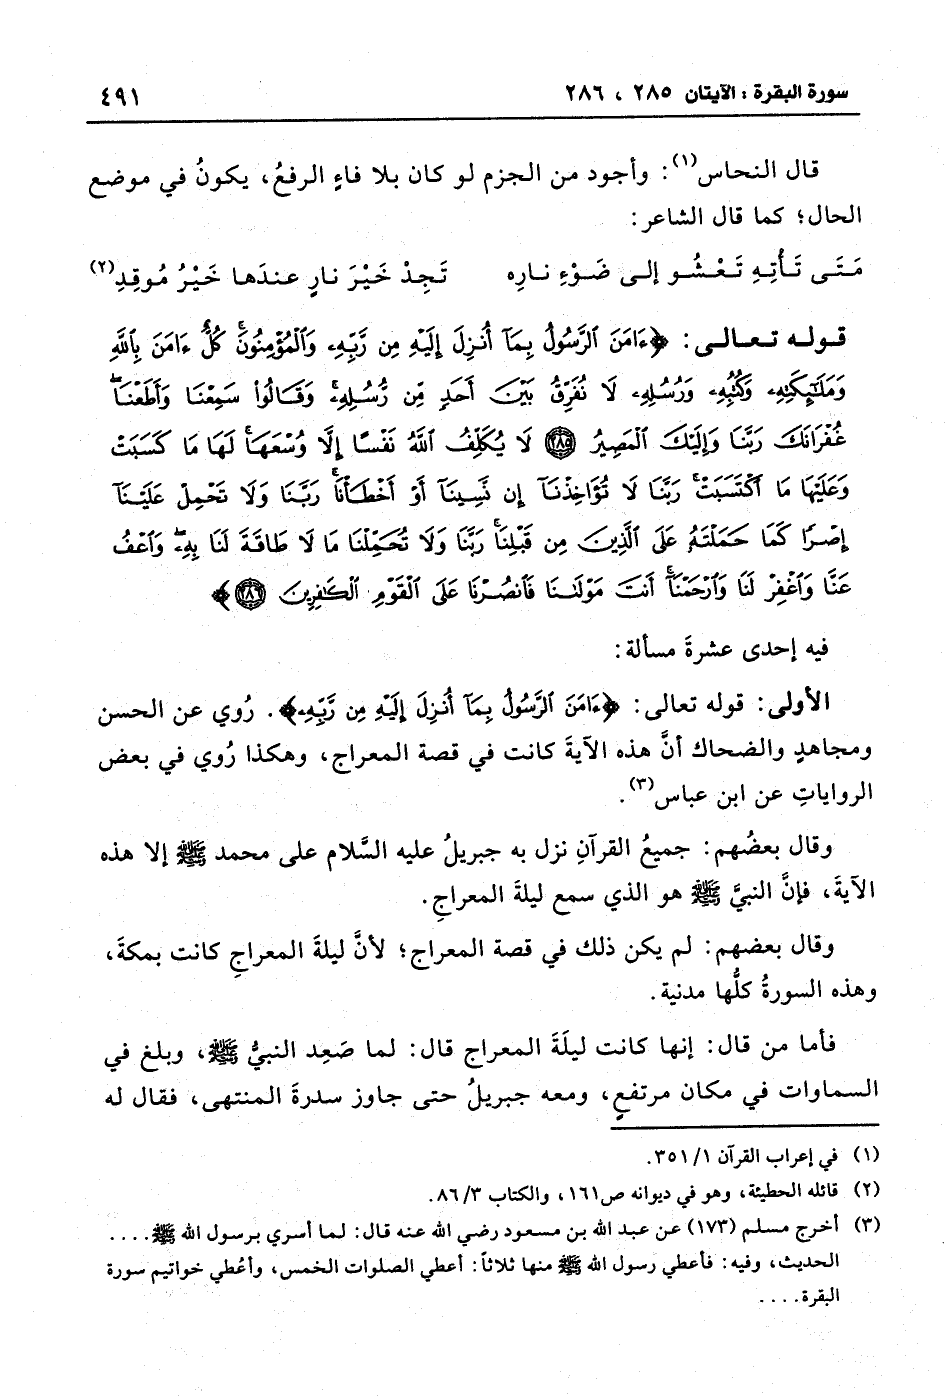 سورة البقرة : الآيتان ٢٨٥ ، ٢٨٦ ٤٩١
قال النحاس(١): وأجود من الجزم لو كان بلا فاءٍ الرفعُ، يكونُ في موضع
الحال؛ كما قال الشاعر:
مَتَى تَأْتِهِ تَعْشُو إلى ضَوْءِ ناره تَجِدْ خَيْرَ نارٍ عندَها خَيْرُ مُوقِدِ(٢)
قوله تعالى: ﴿ءَامَنَ ٱلرَّسُولُ بِمَآ أُنزِلَ إِلَيْهِ مِن رَّبِّهِۦ وَٱلْمُؤْمِنُونَۚ كُلٌّ ءَامَنَ بِٱللَّهِ
وَمَلَٰٓئِكَتِهِۦ وَكُتُبِهِۦ وَرُسُلِهِۦ لَا نُفَرِّقُ بَيْنَ أَحَدٍ مِّن رُّسُلِهِۦۚ وَقَالُوا۟ سَمِعْنَا وَأَطَعْنَاۖ
غُفْرَانَكَ رَبَّنَا وَإِلَيْكَ ٱلْمَصِيرُ ٢٨٥ لَا يُكَلِّفُ ٱللَّهُ نَفْسًا إِلَّا وُسْعَهَاۚ لَهَا مَا كَسَبَتْ
وَعَلَيْهَا مَا ٱكْتَسَبَتْۗ رَبَّنَا لَا تُؤَاخِذْنَآ إِن نَّسِينَآ أَوْ أَخْطَأْنَاۚ رَبَّنَا وَلَا تَحْمِلْ عَلَيْنَآ
إِصْرًا كَمَا حَمَلْتَهُۥ عَلَى ٱلَّذِينَ مِن قَبْلِنَاۚ رَبَّنَا وَلَا تُحَمِّلْنَا مَا لَا طَاقَةَ لَنَا بِهِۦۖ وَٱعْفُ
عَنَّا وَٱغْفِرْ لَنَا وَٱرْحَمْنَآۚ أَنتَ مَوْلَىٰنَا فَٱنصُرْنَا عَلَى ٱلْقَوْمِ ٱلْكَٰفِرِينَ ٢٨٦﴾
فيه إحدى عشرةَ مسألة:
الأولى: قوله تعالى: ﴿ءَامَنَ ٱلرَّسُولُ بِمَآ أُنزِلَ إِلَيْهِ مِن رَّبِّهِۦ﴾. رُوي عن الحسن
ومجاهدٍ والضحاك أنَّ هذه الآيةَ كانت في قصة المعراج، وهكذا رُوي في بعض
الرواياتِ عن ابن عباس(٣).
وقال بعضُهم: جميعُ القرآنِ نزل به جبريلُ عليه السَّلام على محمد ﷺ إلا هذه
الآيةَ، فإنَّ النبيَّ ﷺ هو الذي سمع ليلةَ المعراجِ.
وقال بعضهم: لم يكن ذلك في قصة المعراج؛ لأنَّ ليلةَ المعراجِ كانت بمكةَ،
وهذه السورةُ كلُّها مدنية.
فأما من قال: إنها كانت ليلَةَ المعراج قال: لما صَعِد النبيُّ ﷺ، وبلغ في
السماوات في مكان مرتفعٍ، ومعه جبريلُ حتى جاوز سدرةَ المنتهى، فقال له
(١) في إعراب القرآن ٣٥١/١.
(٢) قائله الحطيئة، وهو في ديوانه ص١٦١، والكتاب ٨٦/٣.
(٣) أخرج مسلم (١٧٣) عن عبد الله بن مسعود رضي الله عنه قال: لما أسري برسول الله ﷺ....
الحديث، وفيه: فأعطي رسول الله ﷺ منها ثلاثاً: أعطي الصلوات الخمس، وأعُطي خواتيم سورة
البقرة....